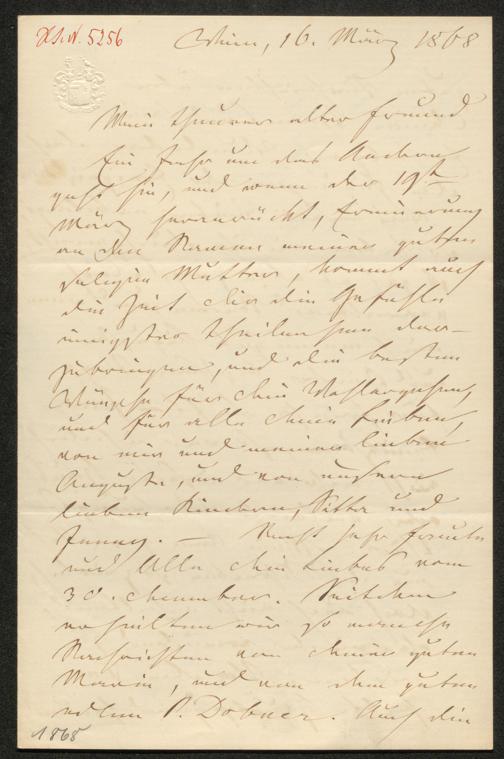 HIN. 5256
Wien, 16. März 1868
Mein theurer alter Freund
Ein Jahr um das Andere
geht hin, und wenn der 19te
März heranrückt, Erinnerung
an den Namen meiner guten
seligen Mutter, kommt auch
die Zeit dir die Gefühle
innigster Theilnahme dar-
zubringen, und die besten
Wünsche für dein Wohlergehen,
und für alle deine Lieben,
von mir und meiner lieben
Auguste, und von unsern
lieben Kindern, Sitta und
Fanny. — Recht sehr freute
mich Alle dein Liebes vom
30. Dezember. Seitdem
erhielten wir so manche
Nachrichten von deiner guten
Marie, und von dem guten
edlen P. Dobner. Auch die
1868